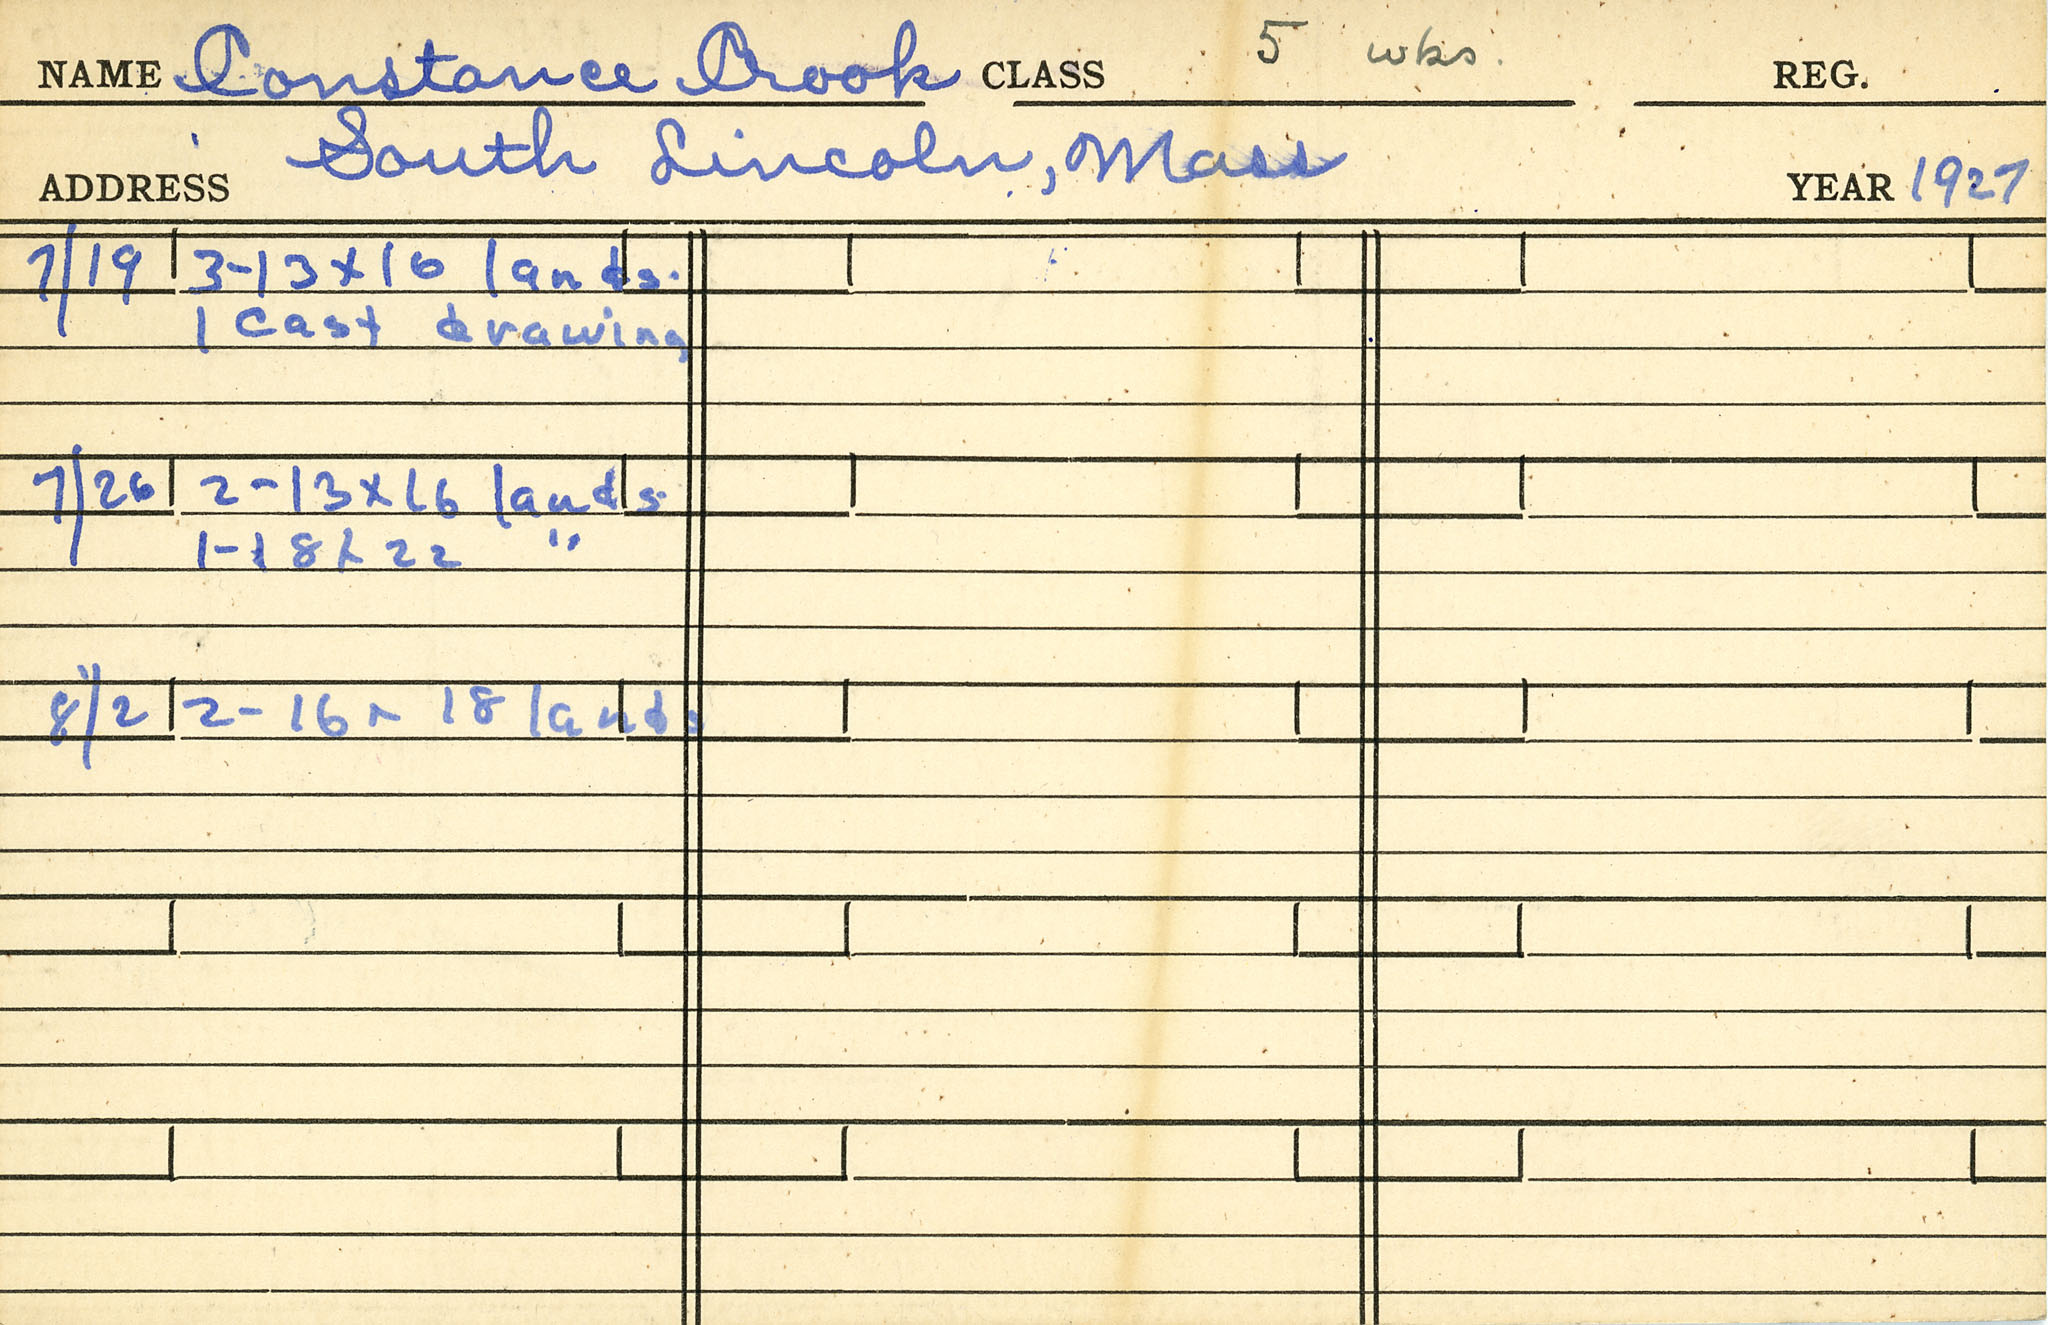 NAME Constance Crook CLASS 5 wks. REG.
ADDRESS South Lincoln, Mass YEAR 1927
7/19 3-13x16 lands.
1 Cast drawing
7/26 2-13x16 lands.
1-18x22 "
8/2 2-16x18 lands